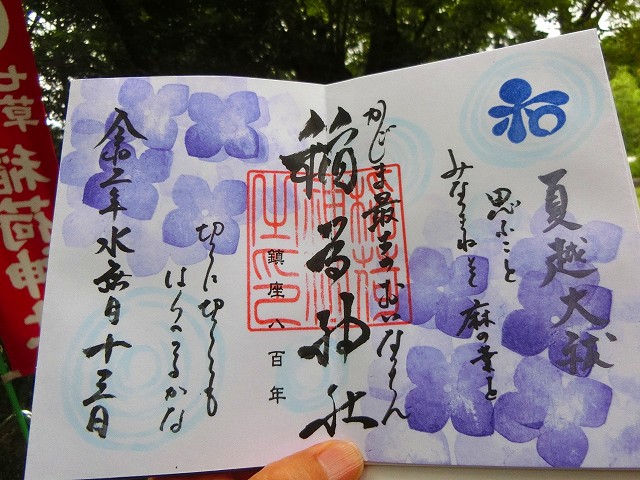 和
夏越大祓
思ふこと
みなつきねとて 麻の葉を
かしま最古のおいなりさん
稲荷神社
鎮座八百年
切りに切りても
はらへつるかな
令和二年水無月十三日
七草
稲荷神社